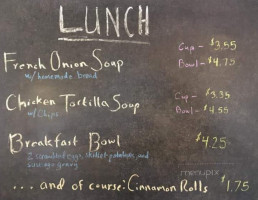 LUNCH
French Onion Soup Cup - $3.55
w/ homemade bread Bowl - $4.75
Chicken Tortilla Soup Cup - $3.35
w/ chips Bowl - $4.55
Breakfast Bowl $4.25
2 scrambled eggs, skillet potatoes, and
sausage gravy
menupix
... and of course: Cinnamon Rolls $1.75